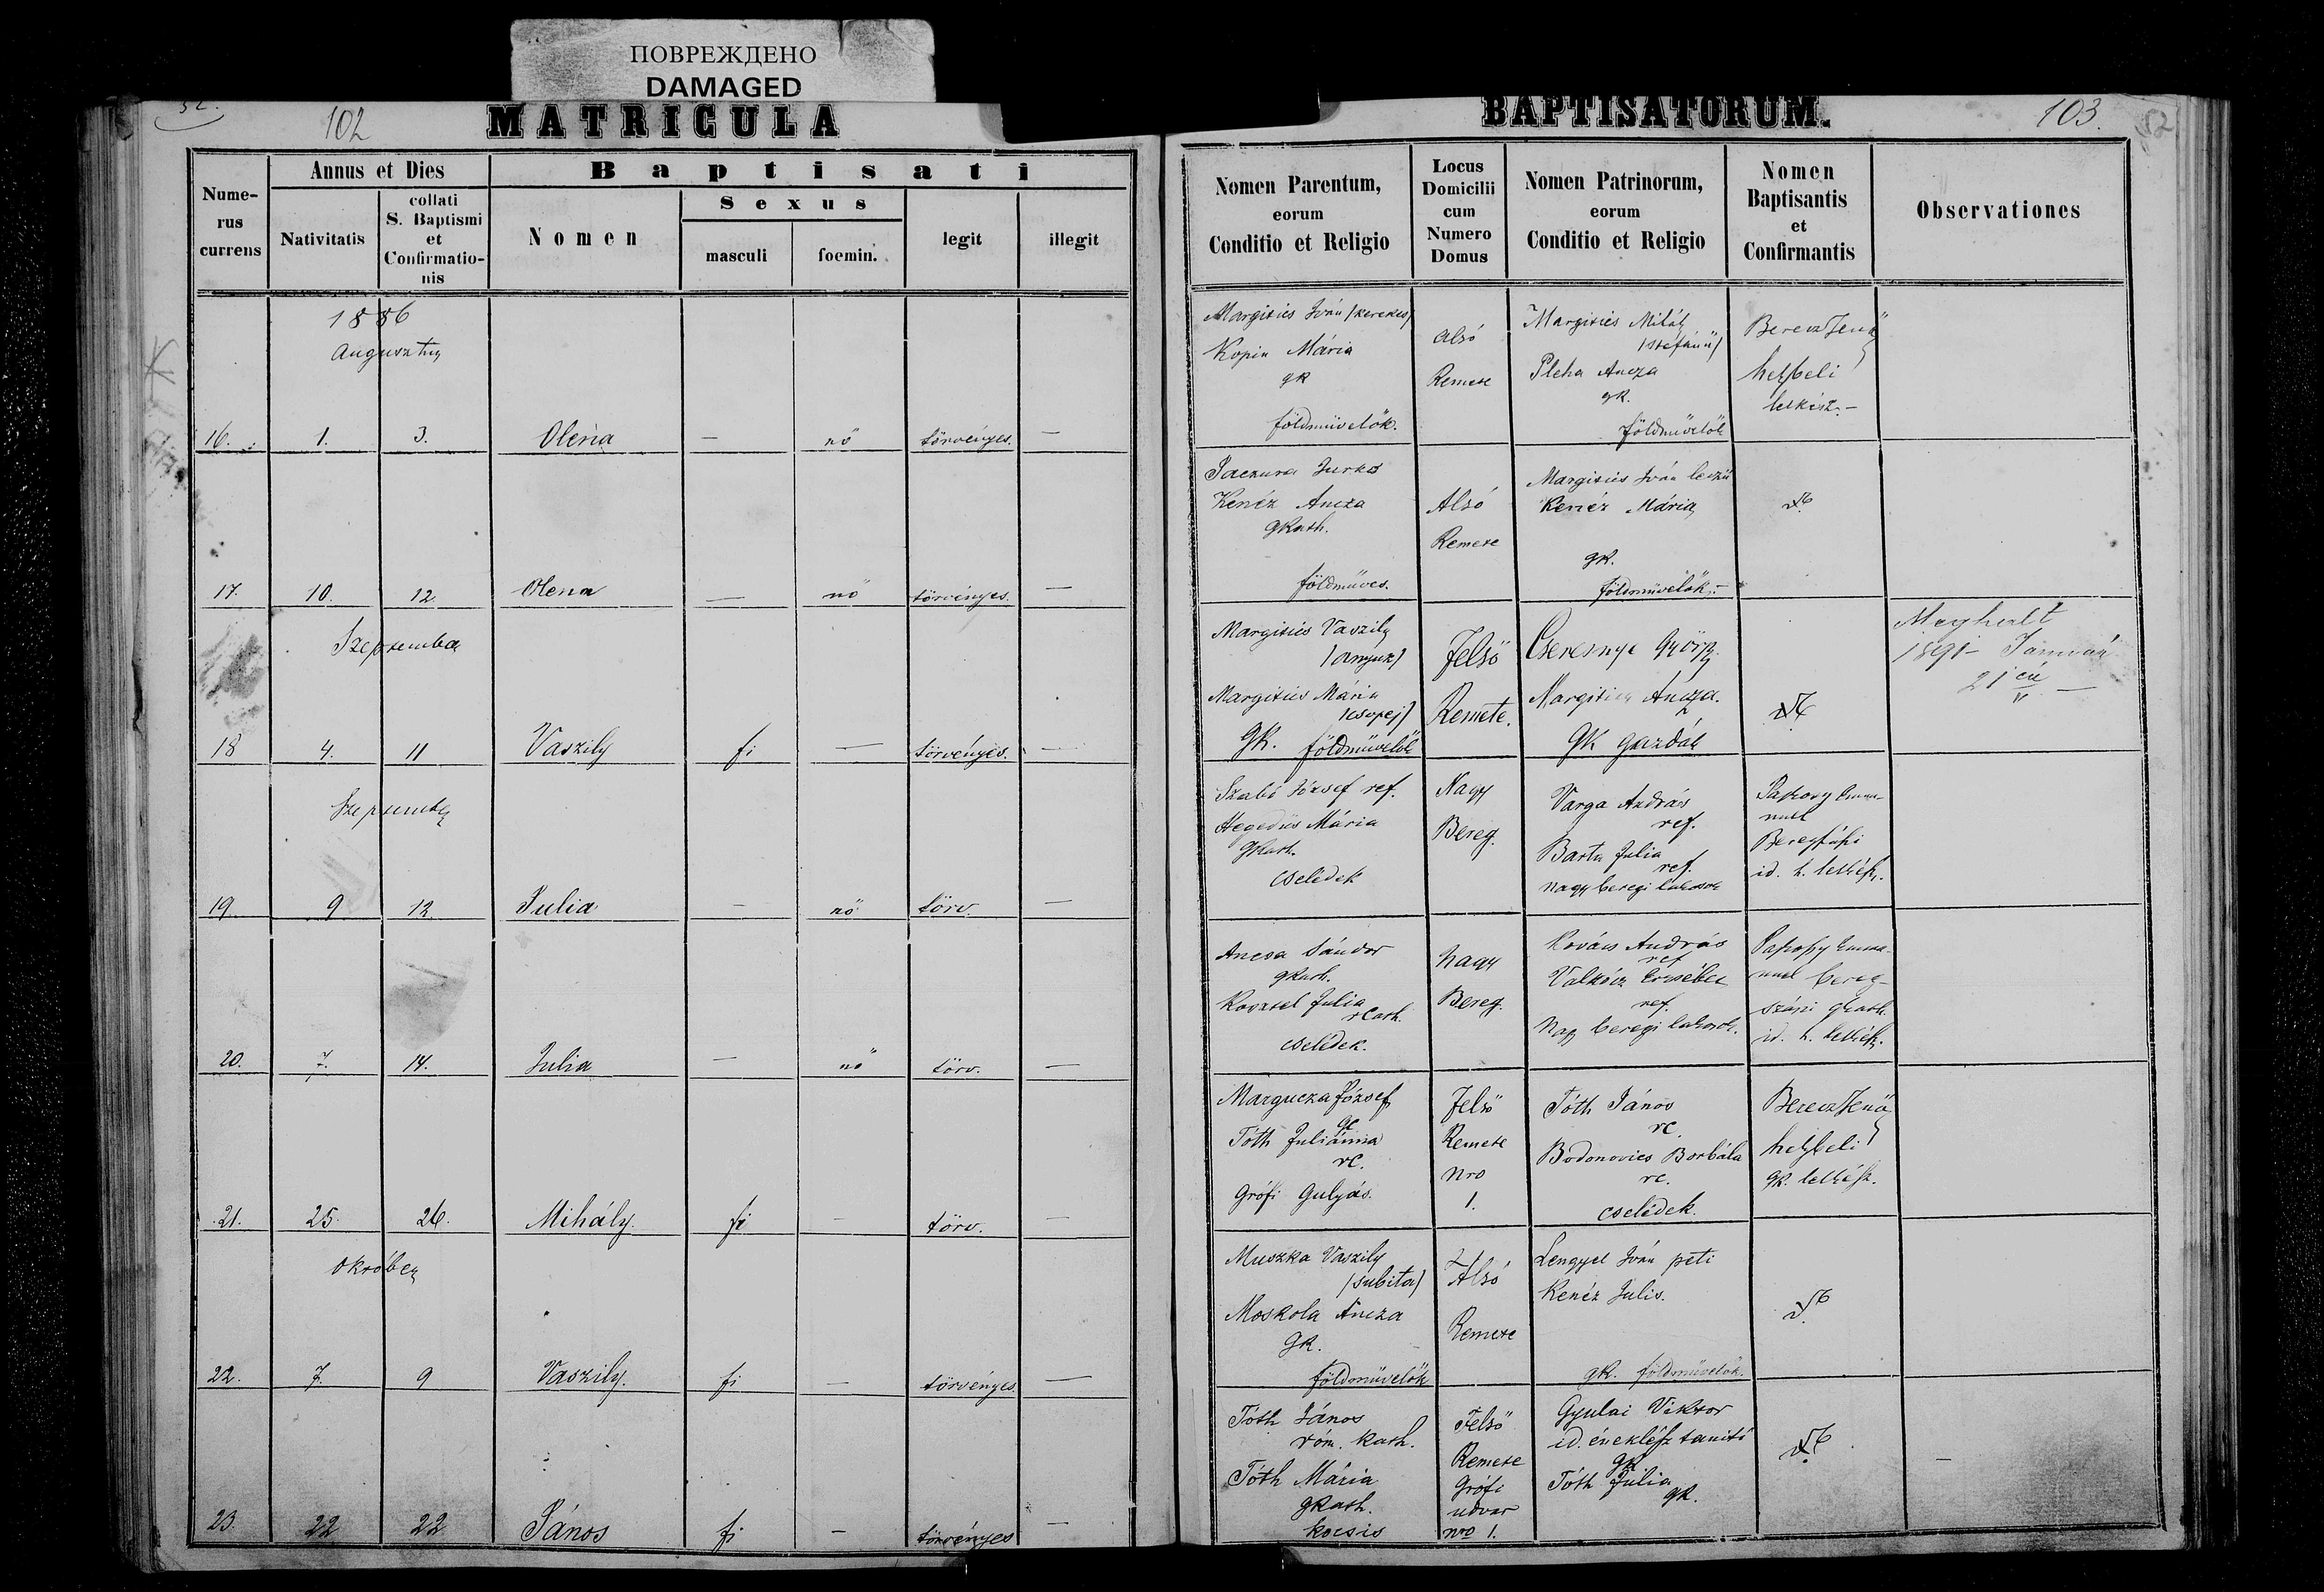 ПОВРЕЖДЕНО
DAMAGED
102
MATRICULA
Numerus currens
Annus et Dies
Nativitatis
collati S. Baptismi et Confirmationis
Baptisati
Nomen
Sexus
masculi
foemin.
legit
illegit
1886
Augusztus
16. 1. 3. Olena — nő törvényes. —
17. 10. 12 Olena — nő törvényes. —
Szeptember
18 4. 11 Vaszily fi — törvényes. —
Szeptember
19. 9 12 Julia — nő törv. —
20. 7. 14. Julia — nő törv. —
21. 25. 26. Mihály. fi — törv. —
Október
22. 7. 9 Vaszily. fi — törvényes. —
23. 22 22 János fi — törvényes —
BAPTISATORUM.
103.
52
Nomen Parentum,
eorum
Conditio et Religio
Locus
Domicilii
cum
Numero
Domus
Nomen Patrinorum,
eorum
Conditio et Religio
Nomen
Baptisantis
et
Confirmantis
Observationes
Margitics Iván /kerekes/
Kopin Mária
gk
földmüvelők.
Alsó
Remete
Margitics Mihály
Pleha Ancza
gk.
földmüvelők
Berecz Jenő
helybeli
lelkész. —
Paczura Jurko
Kenéz Ancza
gkath.
földmüves.
Alsó
Remete
Margitics Iván
Kenéz Mária
gk.
földmüvelők. —
Margitics Vaszily
Margitics Mária
/csopej/
gk. földmüvelők
Felső
Remete.
Cseresnye György
Margitics Ancza.
gk gazdák
Meghalt
1891 — Január
21 én —
Szabó József ref.
Hegedüs Mária
gkath.
cselédek
Nagy
Bereg.
Varga András
ref.
Barta Julia
ref.
nagy beregi lakosok
id. h. lelkész.
Ancsa Sándor
gkath.
Julia
rcath.
cselédek.
Nagy
Bereg.
Kovács András
ref
Erzsébet
ref.
Nagy beregi lakosok.
bereg-
szászi gkath.
id. h. lelkész.
Margucza József
gk
Tóth Juliánna
rc.
Grófi Gulyás.
Felső
Remete
nro
1.
Tóth János
rc.
Bodonovics Borbála
rc.
cselédek.
Berecz Jenő
helybeli
gk. lelkész.
Muszka Vaszily
/subita/
Moskola Ancza
gk.
földmüvelők
Alsó
Remete
Lengyel Iván peti
Kenéz Julis.
gk. földmüvelők.
Tóth János
róm. kath.
Tóth Mária
gkath.
kocsis
Felső
Remete
Grófi
udvar
nro 1.
Gyulai Viktor
id. éneklész tanitó
gk
Tóth Julia
gk.
—